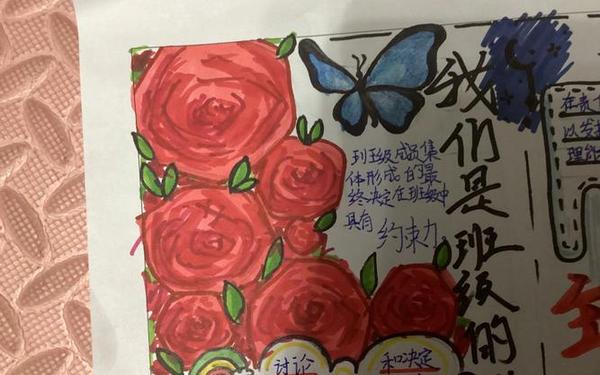 我们是班级的
班级成员集
体形成的最
终决定在班级中
具有 约束力
讨论
和决定
在责
以发
理能